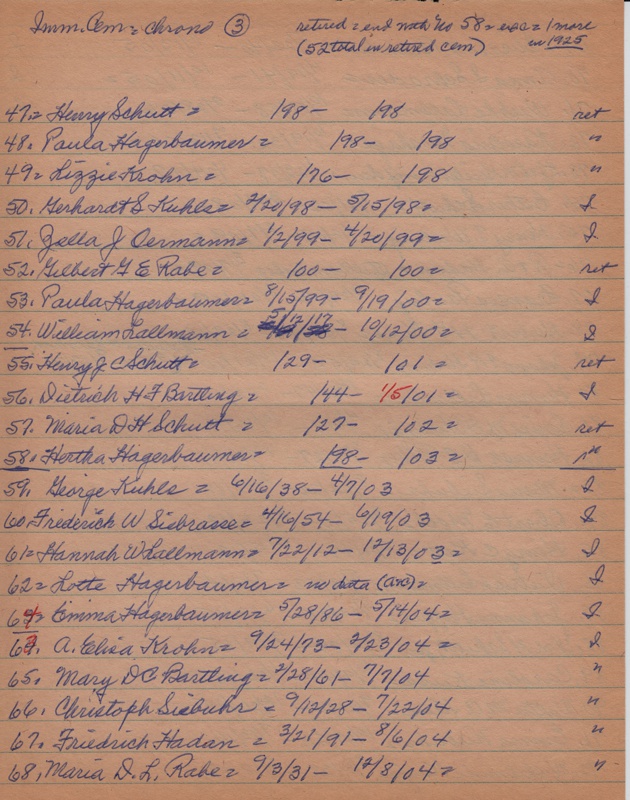 Imm. Cem = chrono ③ retired = end with No 58 = exc = 1 more
(52 total in retired cem) in 1925
47 = Henry Schutt = /98 - /98 ret
48. Paula Hagerbaumer = /98 - /98 "
49 = Lizzie Krohn = /76 - /98 "
50. Gerhardt S Kuhls = 2/20/98 - 5/15/98 = I
51. Zella J Oermann = 1/2/99 - 4/20/99 = I
52. Gilbert G E Rabe = /00 - /00 = ret
53. Paula Hagerbaumer = 8/15/99 - 9/19/00 = I
54. William Lallmann = 5/12/17 - 10/12/00 = I
55. Henry J C Schutt = /29 - /01 = ret
56. Dietrich H F Bartling = /44 - 1/5/01 = I
57. Maria D H Schutt = /27 - /02 = ret
58. Hertha Hagerbaumer = /98 - /03 = "
59. George Kuhls = 6/16/38 - 4/7/03 I
60. Friederich W Sisbrasse = 4/16/54 - 6/19/03 I
61 = Hannah W Lallmann = 7/22/12 - 12/13/03 = I
62 = Lotte Hagerbaumer = no data (ans) = I
64 = Emma Hagerbaumer = 5/28/86 - 5/14/04 = I
63. A. Elisa Krohn = 9/24/73 - 2/23/04 = I
65. Mary D C Bartling = 2/28/61 - 7/7/04 "
66. Christoph Siebuhr = 9/12/28 - 7/22/04 "
67. Friedrich Hadan = 3/21/91 - 8/6/04 "
68. Maria D. L. Rabe = 9/3/31 - 12/8/04 = "